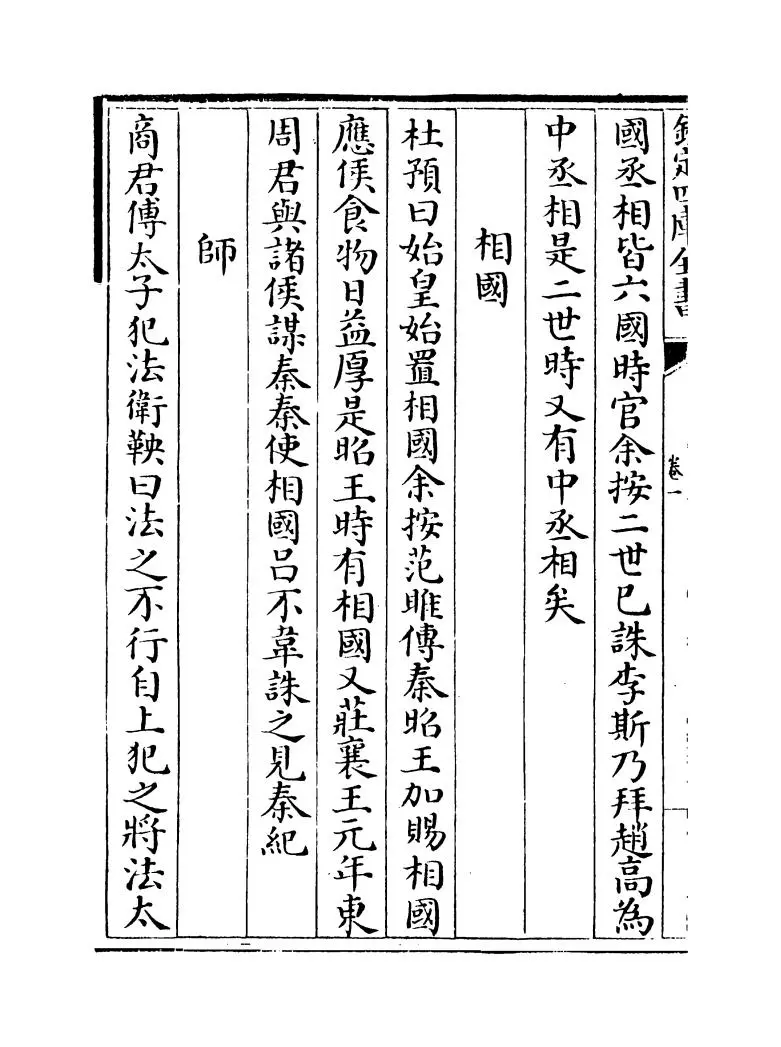 欽定四庫全書
卷一
國丞相皆六國時官余按二世已誅李斯乃拜趙高為
中丞相是二世時又有中丞相矣
相國
杜預曰始皇始置相國余按范雎傳秦昭王加賜相國
應侯食物日益厚是昭王時有相國又莊襄王元年東
周君與諸侯謀秦秦使相國呂不韋誅之見秦紀
師
商君傅太子犯法衛鞅曰法之不行自上犯之將法太